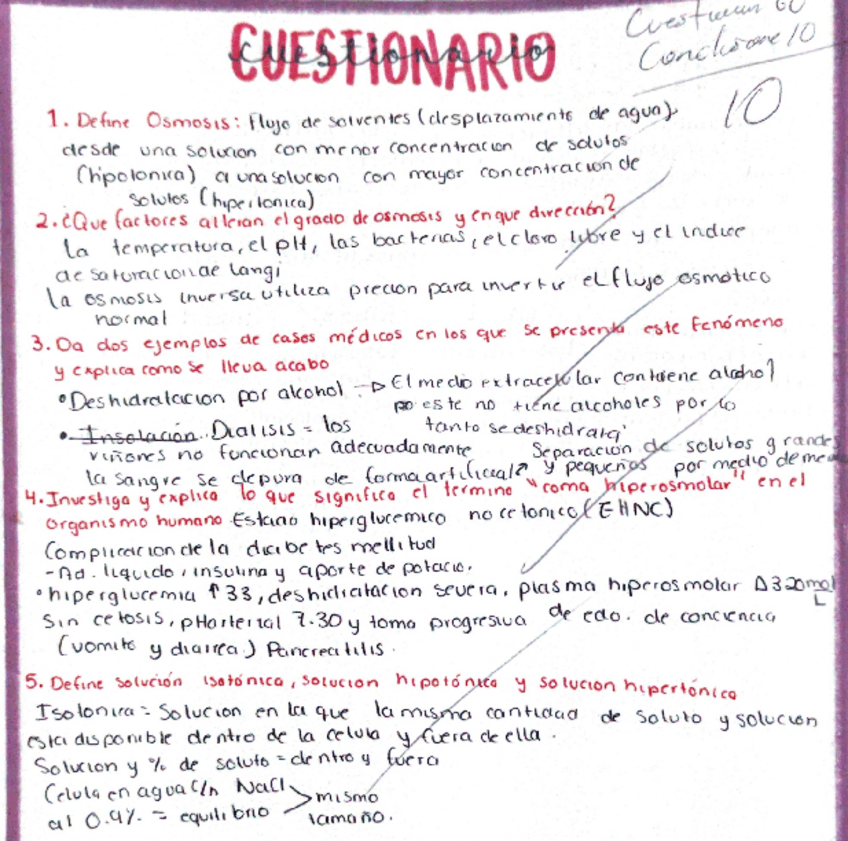 Cuestionario 60
Conclusione 10
CUESTIONARIO
cuestionario
10
1. Define Osmosis: flujo de solventes (desplazamiento de agua)
desde una solucion con menor concentracion de solutos
(hipotonica) a una solucion con mayor concentracion de
solutos (hipertonica)
2. ¿Que factores alteran el grado de osmosis y en que dirección?
La temperatura, el pH, las bacterias, el cloro libre y el indice
de saturacion de langi
la osmosis inversa utiliza precion para invertir el flujo osmotico
normal
3. Da dos ejemplos de casos médicos en los que se presenta este fenómeno
y explica como se lleva acabo
• Deshidratacion por alcohol → El medio extracelular contiene alcohol
este no tiene alcoholes por lo
tanto se deshidrata
• Insolación. Dialisis = los
riñones no funcionan adecuadamente
Separación de solutos grandes
la sangre se depura de forma artificial y pequeños por medio de me
4. Investiga y explica lo que significa el termino "coma hiperosmolar" en el
organismo humano Estado hiperglucemico no cetonico (EHNC)
Complicacion de la diabetes mellitud
- Ad. liquido, insulina y aporte de potacio.
• hiperglucemia ↑ 33, deshidratacion severa, plasma hiperosmolar Δ320 mol/L
Sin cetosis, pH arterial 7.30 y toma progresiva de edo. de conciencia
(vomito y diarrea) Pancreatitis.
5. Define solución isotónica, solucion hipotónica y solucion hipertónica
Isotonica = Solucion en la que la misma cantidad de soluto y solucion
esta disponible dentro de la celula y fuera de ella.
Solucion y % de soluto = dentro y fuera
Celula en agua c/n NaCl > mismo
al 0.9% = equilibrio tamaño.